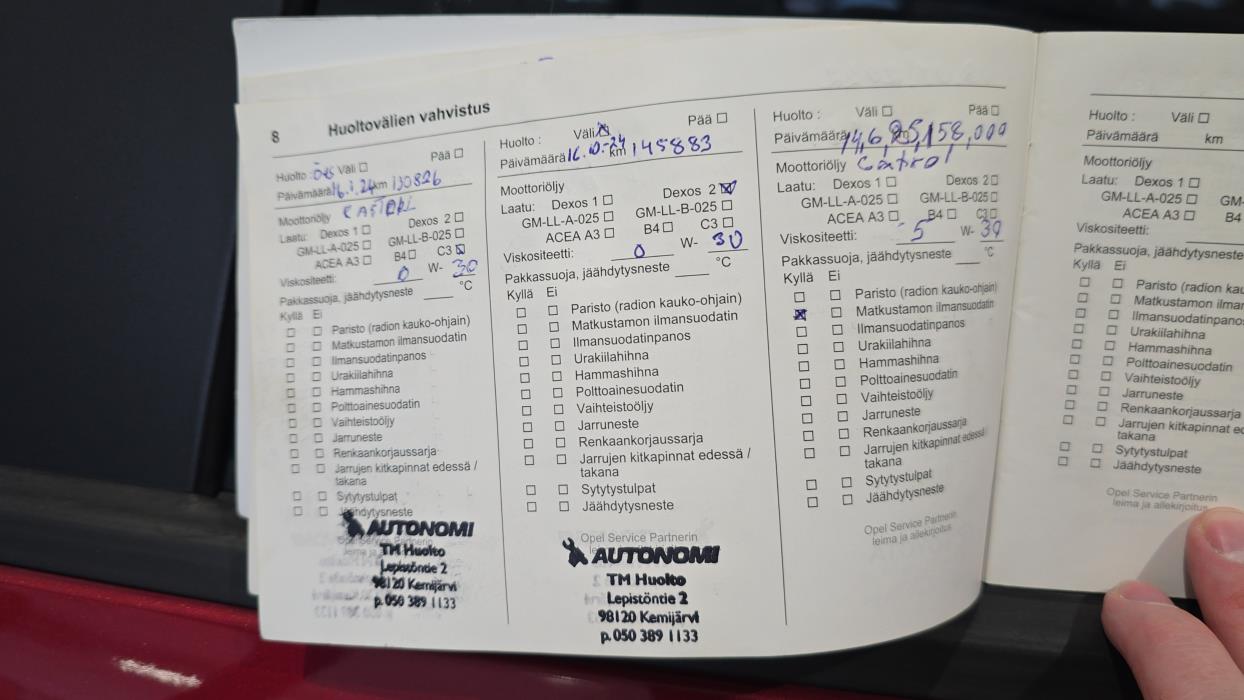 8 Huoltovälien vahvistus
Huolto : Väli ☐ Pää ☐
Päivämäärä 16.1.24 km 130826
Moottoriöljy CASTROL
Laatu: Dexos 1 ☐ Dexos 2 ☐
GM-LL-A-025 ☐ GM-LL-B-025 ☐
ACEA A3 ☐ B4 ☐ C3 ☒
Viskositeetti: 0 W- 30
Pakkassuoja, jäähdytysneste ____ °C
Kyllä Ei
☐ ☐ Paristo (radion kauko-ohjain)
☐ ☐ Matkustamon ilmansuodatin
☐ ☐ Ilmansuodatinpanos
☐ ☐ Urakiilahihna
☐ ☐ Hammashihna
☐ ☐ Polttoainesuodatin
☐ ☐ Vaihteistoöljy
☐ ☐ Jarruneste
☐ ☐ Renkaankorjaussarja
☐ ☐ Jarrujen kitkapinnat edessä /
takana
☐ ☐ Sytytystulpat
☐ ☐ Jäähdytysneste
AUTONOMI
TM Huolto
Lepistöntie 2
98120 Kemijärvi
p. 050 389 1133
Huolto : Väli ☒ Pää ☐
Päivämäärä 16.10-24 km 145883
Moottoriöljy
Laatu: Dexos 1 ☐ Dexos 2 ☒
GM-LL-A-025 ☐ GM-LL-B-025 ☐
ACEA A3 ☐ B4 ☐ C3 ☐
Viskositeetti: 0 W- 30
Pakkassuoja, jäähdytysneste ____ °C
Kyllä Ei
☐ ☐ Paristo (radion kauko-ohjain)
☐ ☐ Matkustamon ilmansuodatin
☐ ☐ Ilmansuodatinpanos
☐ ☐ Urakiilahihna
☐ ☐ Hammashihna
☐ ☐ Polttoainesuodatin
☐ ☐ Vaihteistoöljy
☐ ☐ Jarruneste
☐ ☐ Renkaankorjaussarja
☐ ☐ Jarrujen kitkapinnat edessä /
takana
☐ ☐ Sytytystulpat
☐ ☐ Jäähdytysneste
Opel Service Partnerin
AUTONOMI
TM Huolto
Lepistöntie 2
98120 Kemijärvi
p. 050 389 1133
Huolto : Väli ☐ Pää ☐
Päivämäärä 14,6,25, km 158,000
Moottoriöljy Castrol
Laatu: Dexos 1 ☐ Dexos 2 ☐
GM-LL-A-025 ☐ GM-LL-B-025 ☐
ACEA A3 ☐ B4 ☐ C3 ☐
Viskositeetti: 5 W- 30
Pakkassuoja, jäähdytysneste ____ °C
Kyllä Ei
☐ ☐ Paristo (radion kauko-ohjain)
☒ ☐ Matkustamon ilmansuodatin
☐ ☐ Ilmansuodatinpanos
☐ ☐ Urakiilahihna
☐ ☐ Hammashihna
☐ ☐ Polttoainesuodatin
☐ ☐ Vaihteistoöljy
☐ ☐ Jarruneste
☐ ☐ Renkaankorjaussarja
☐ ☐ Jarrujen kitkapinnat edessä
takana
☐ ☐ Sytytystulpat
☐ ☐ Jäähdytysneste
Opel Service Partnerin
leima ja allekirjoitus
Huolto : Väli ☐
Päivämäärä km
Moottoriöljy
Laatu: Dexos 1 ☐
GM-LL-A-025 ☐ GM-
ACEA A3 ☐
Viskositeetti:
Pakkassuoja, jäähdytysneste
Kyllä Ei
☐ ☐ Paristo (radion kau
☐ ☐ Matkustamon ilmar
☐ ☐ Ilmansuodatinpano
☐ ☐ Urakiilahihna
☐ ☐ Hammashihna
☐ ☐ Polttoainesuodatin
☐ ☐ Vaihteistoöljy
☐ ☐ Jarruneste
☐ ☐ Renkaankorjaussarja
☐ ☐ Jarrujen kitkapinnat e
takana
☐ ☐ Sytytystulpat
☐ ☐ Jäähdytysneste
Opel Service Partnerin
leima ja allekirjoitus